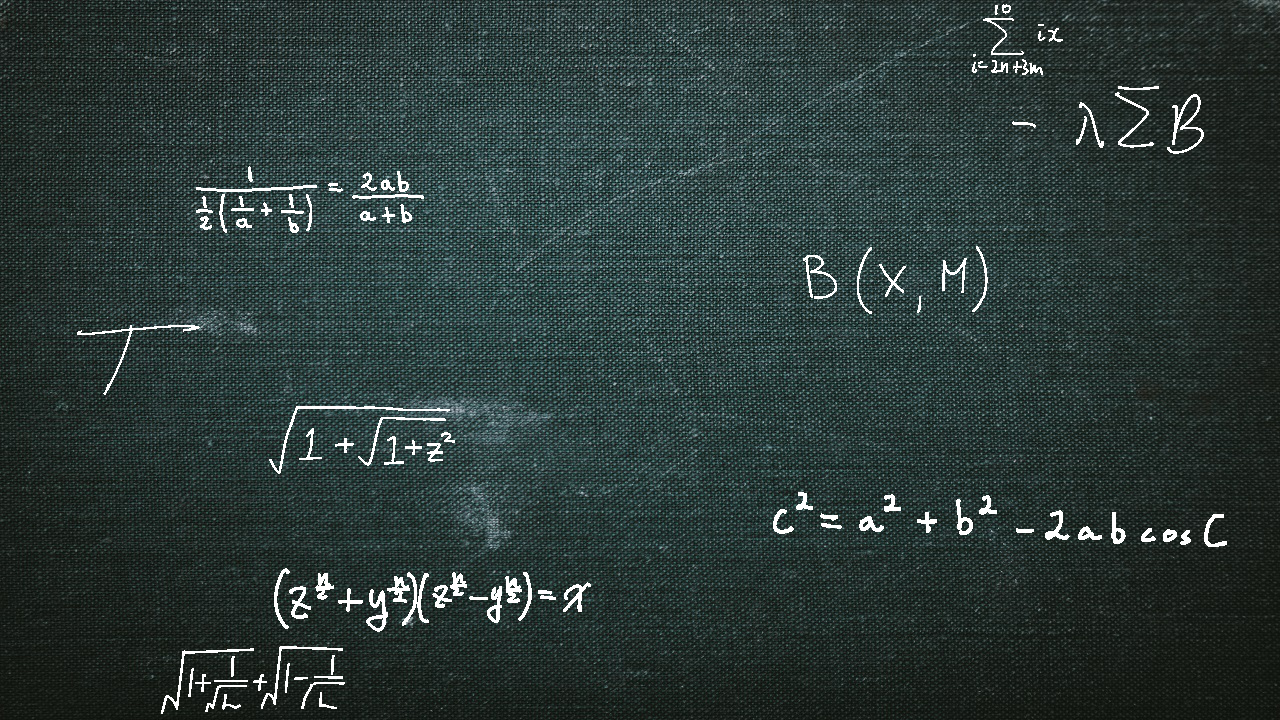 \sum_{i=2n+3m}^{10} ix
- λ∑B
\frac{1}{\frac{1}{2}(\frac{1}{a}+\frac{1}{b})} = \frac{2ab}{a+b}
B(X,M)
T
\sqrt{1+\sqrt{1+z^2}}
c^2 = a^2 + b^2 - 2ab cos C
(z^{\frac{n}{2}}+y^{\frac{n}{2}})(z^{\frac{n}{2}}-y^{\frac{n}{2}})=x
\sqrt{1+\frac{1}{\sqrt{L}}}+\sqrt{1-\frac{1}{\sqrt{L}}}